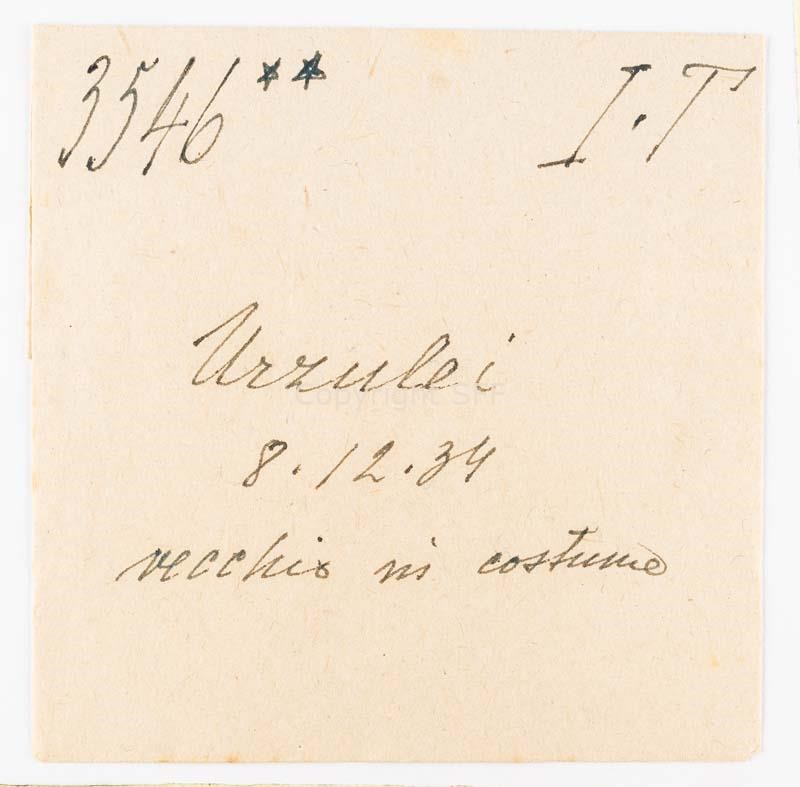 3546** I.T
Urzulei
Copyright SFF
8.12.34
vecchio in costume